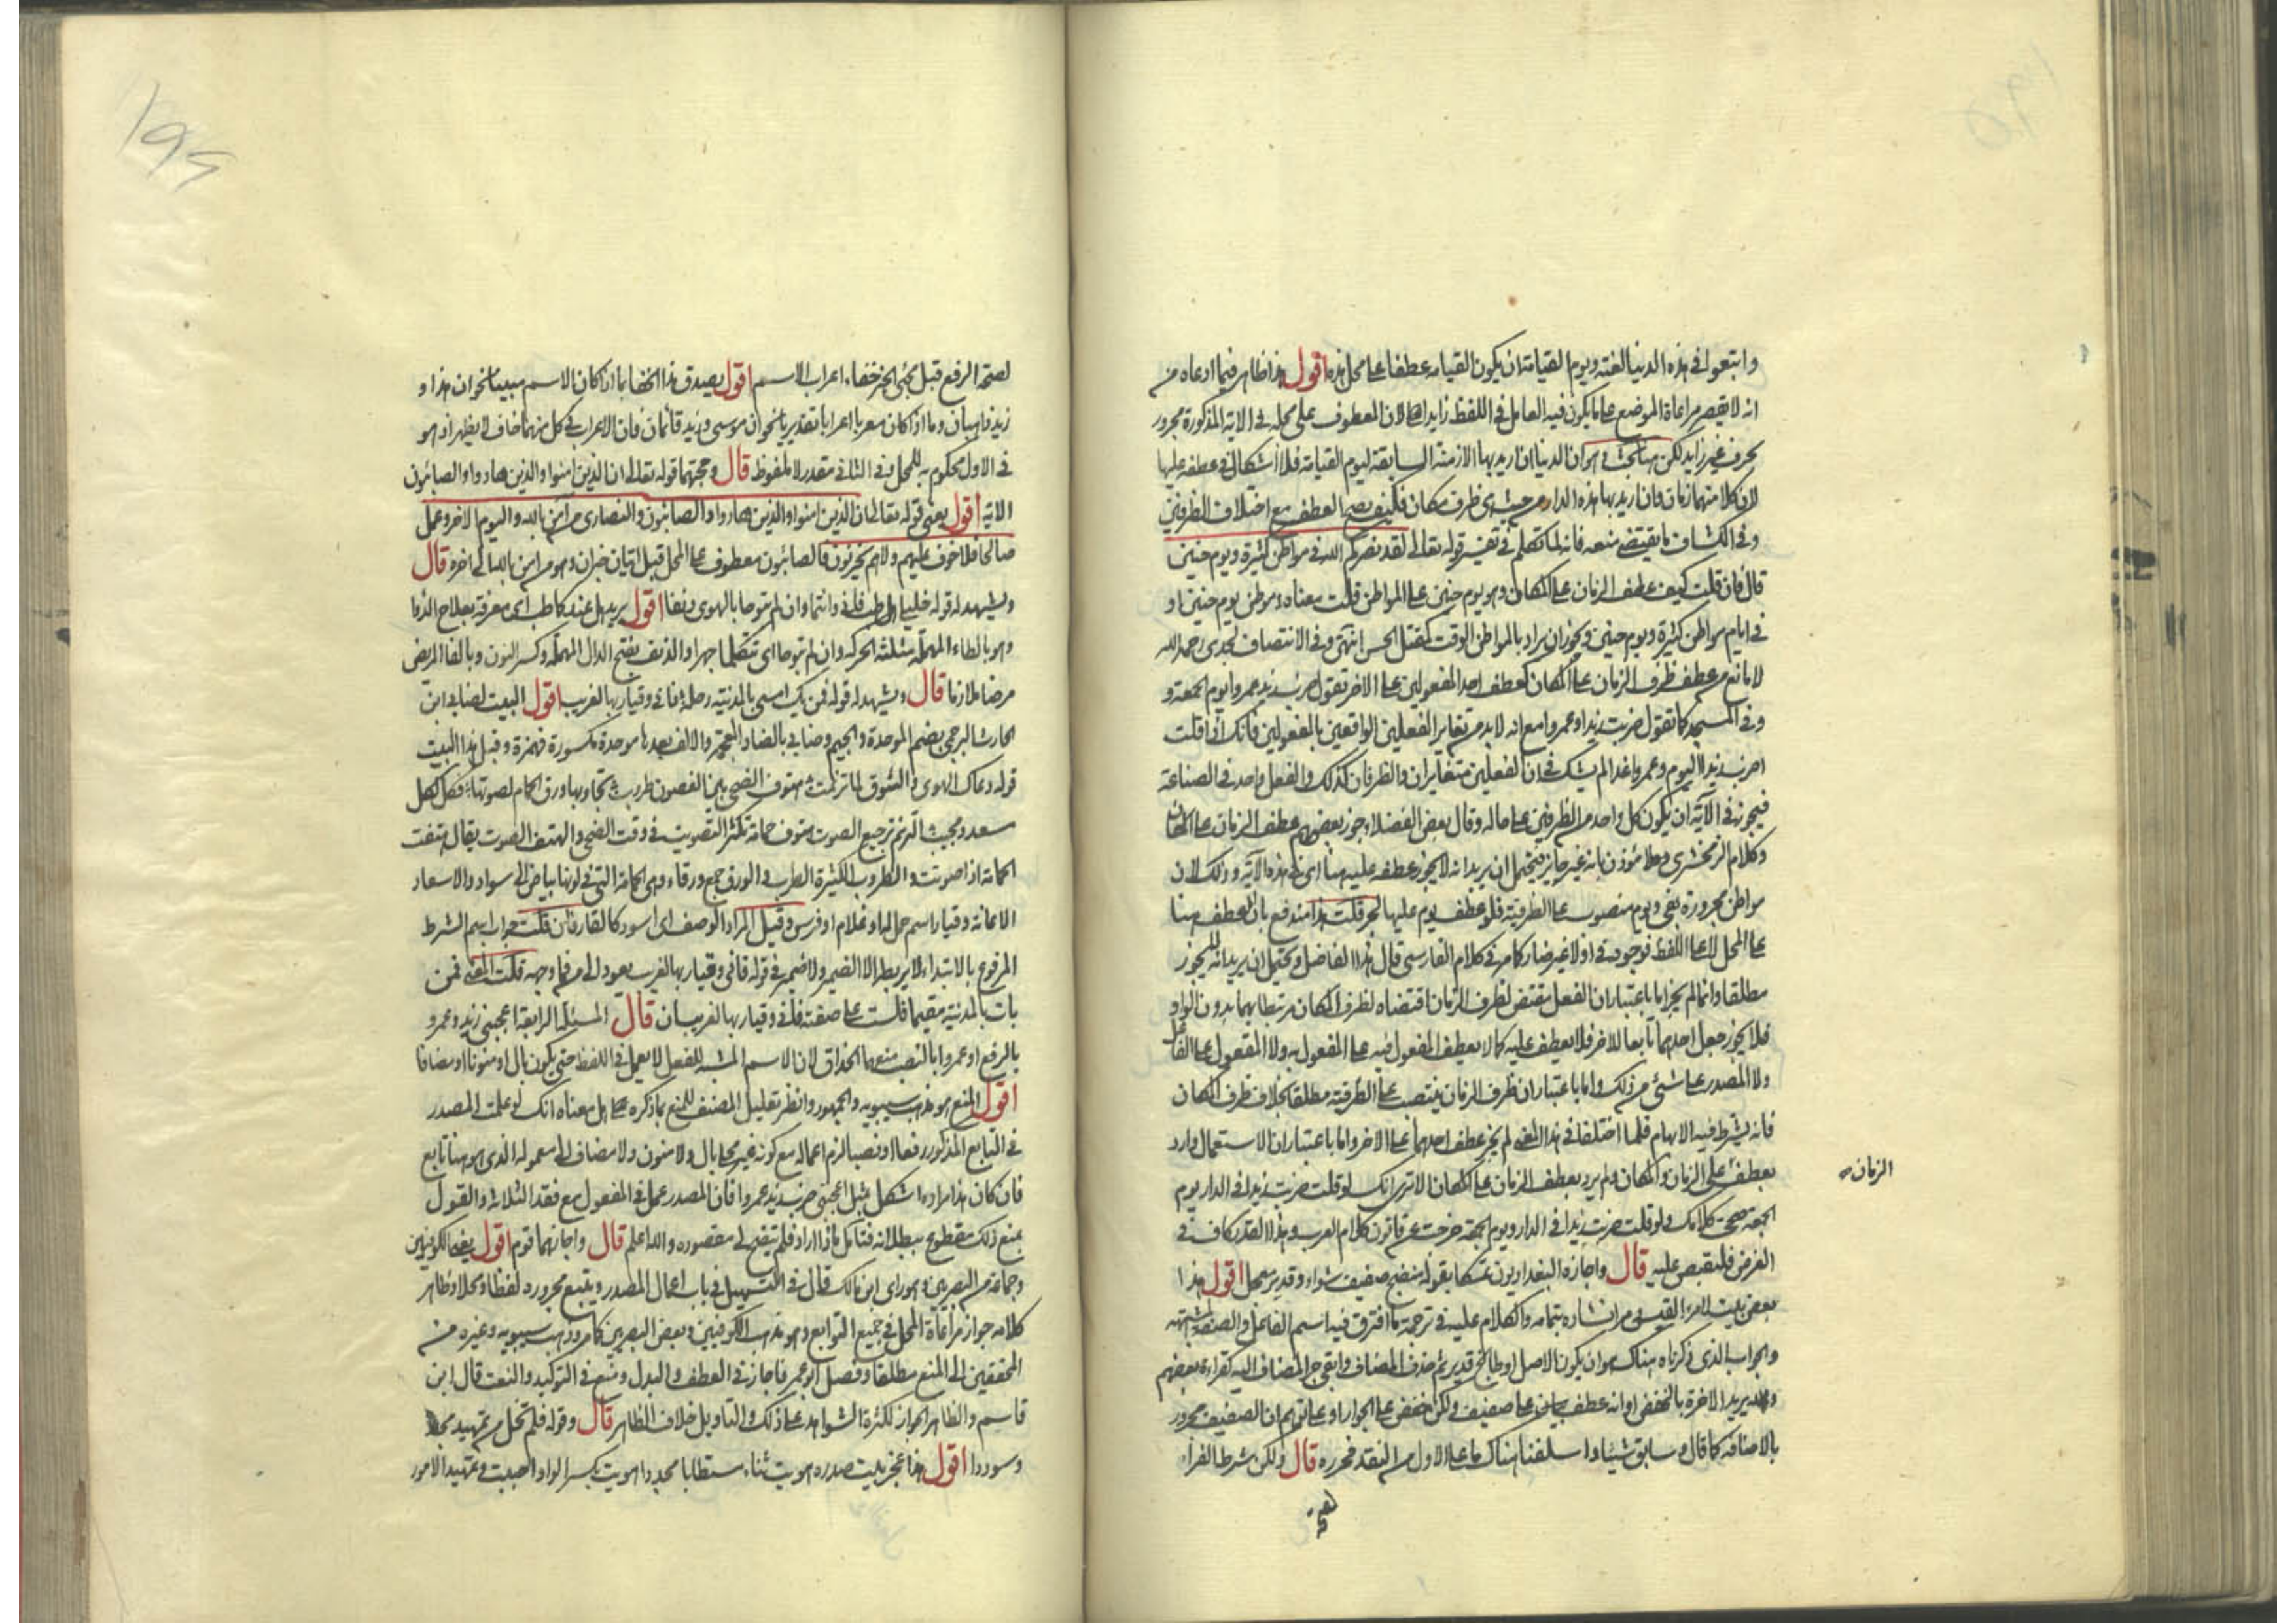 واتبعوا في هذه الدنيا لعنة ويوم القيامة ان يكون القيامة عطفا على محل هذه اقول هذا ظاهر فيما ادعاه من
انه لا يقصر مراعاة الموضع على ما يكون فيه العامل في اللفظ زايدا لان المعطوف على محله في الاية المذكورة مجرور
بحرف غير زايد لكن هنا بحث وهو ان الدنيا ان اريد بها الازمنة السابقة ليوم القيامة فلا اشكال في عطفه عليها
لان كلا منهما زمان وان اريد بها هذه الدار من حيث هي ظرف مكان فكيف يصح العطف مع اختلاف الظرفين
وفي الكشاف ما يقتضي منعه فانه لما تكلم في تفسير قوله تعالى لقد نصركم الله في مواطن كثيرة ويوم حنين
قال فان قلت كيف عطف الزمان على المكان وهو يوم حنين على المواطن قلت معناه وموطن يوم حنين او
في ايام مواطن كثيرة ويوم حنين ويجوز ان يراد بالمواطن الوقت كمقتل الحسين انتهى وفي الانتصاف لجدي رحمه الله
لا مانع من عطف ظرف الزمان على المكان كعطف احد المفعولين على الاخر تقول ضرب زيد عمروا يوم الجمعة و
وفي المسجد كما تقول ضربت زيدا وعمروا مع انه لا بد من تغاير الفعلين الواقعين بالمفعولين فانك اذا قلت
اضرب زيدا اليوم وعمروا غدا لم يشك في ان الفعلين متغايران والظرفان كذلك والفعل واحد في الصناعة
فيجوز في الآية ان يكون كل واحد من الظرفين على حاله وقال بعض الفضلاء جوز بعضهم عطف الزمان على المكان
وكلام الزمخشري مؤذن بانه غير جايز فيحتمل ان يريد انه لا يجوز عطفه عليه هنا اي في هذه الآية وذلك لان
مواطن مجرورة بفي ويوم منصوب على الظرفية فلو عطف يوم عليها لجر قلت هذا مندفع بان العطف هنا
على المحل لا على اللفظ فوجود في اولا غير ضار كما مر في كلام الفارسي قال هذا الفاضل ويحتمل ان يريد انه لا يجوز
مطلقا وانما لم يجز اما باعتبار ان الفعل مقتض لظرف الزمان اقتضاه لظرف المكان مرتبطا بهما بدون الواو
فلا يجوز جعل احدهما تابعا للاخر فلا يعطف عليه كما لا يعطف المفعول فيه على المفعول به ولا المفعول على الفاعل
ولا المصدر على شئ من ذلك واما باعتبار ان ظرف الزمان ينتصب على الظرفية مطلقا بخلاف ظرف المكان
فانه يشترط فيه الابهام فلما اختلفا في هذا المعنى لم يجز عطف احدهما على الاخر واما باعتبار ان الاستعمال وارد
بعطف على الزمان والمكان ولم يرد بعطف الزمان على المكان الا ترى انك لو قلت ضربت زيدا في الدار يوم
الزمان
الجمعة صح كلامك ولو قلت ضربت زيدا في الدار ويوم الجمعة خرجت عن قانون كلام العرب وهذا القدر كاف في
الغرض فلنقتصر عليه قال واجازه البغداديون تمسكا بقوله منضج صفيف شواء وقدير معجل اقول هذا
بعض بيت لامرء القيس مر انشاده بتمامه والكلام عليه في ترجمة ما افترق فيه اسم الفاعل والصفة المشبهة
والجواب الذي ذكرناه هناك هو ان يكون الاصل او طابخ قدير ثم حذف المضاف وابقى جر المضاف اليه كقراءة بعضهم
والله يريد الاخرة بالخفض او انه عطف على صفيف ولكن خفض على الجوار او على توهم ان الصفيف مجرور
بالاضافة كما قال ولا سابق شيئا واسلفنا هناك ما على الاول من النقد فحرره قال ولكن شرط الفراء
لصحة الرفع قبل مجئ الخبر خفاء اعراب الاسم اقول يصدق هذا الخفا بما اذا كان الاسم مبنيا نحو ان هذا و
زيد ذاهبان وما اذا كان معربا اعرابا تقديريا نحو ان موسى وزيد قائمان فان الاعراب في كل منهما خاف لا يظهر اذ هو
في الاول محكوم به للمحل وفي الثاني مقدر لا ملفوظ قال وحجتهما قوله تعالى ان الذين امنوا والذين هادوا والصابئون
الاية اقول يعني قوله تعالى ان الذين امنوا والذين هادوا والصابئون والنصارى من آمن بالله واليوم الاخر وعمل
صالحا فلا خوف عليهم ولا هم يحزنون فالصابئون معطوف على المحل قبل اتيان خبر ان وهو من امن بالله الى اخره قال
ويشهد له قوله خليلي هل طب فاني وانتما وان لم تبوحا بالهوى دنفان اقول يريد هل عندكما طب اي معرفة بعلاج الداء
وهو بالطاء المهملة مثلثة الحركة وان لم تبوحا اي تتكلما جهرا والدنف بفتح الدال المهملة وكسر النون وبالفا المريض
مرضا ملازما قال ويشهد له قوله فمن يك امسى بالمدينة رحله فاني وقيار بها لغريب اقول البيت لضابي ابن
الحارث البرجمي بضم الموحدة والجيم وضابي بالضاد المعجمة والالف بعدها موحدة مكسورة فهمزة وقبل هذا البيت
قوله دعاك الهوى والشوق لما ترنمت هتوف الضحى بين الغصون طروب تجاوبها ورق الحمام لصوتها فكل لكل
سعد ومجيب الترنم ترجيع الصوت هتوف حمامة تكثر التصويت في وقت الضحى والهتف الصوت يقال هتفت
الحمامة اذا صوتت والطروب الكثيرة الطرب والورق جمع ورقاء وهي الحمامة التي في لونها بياض الى سواد والاسعاد
الاعانة وقيار اسم جمل له او غلام او فرس وقيل المراد الوصف اي اسود كالقار فان قلت جواب اسم الشرط
المرفوع بالابتداء لا يربطه الا الضمير ولا ضمير في قوله فاني وقيار بها لغريب يعود الى من فما وجهه قلت المعنى فمن
بات بالمدينة مقيما فلست على صفته فاني وقيار بها لغريبان قال المسئلة الرابعة اعجبني زيد وعمرو
بالرفع او عمروا بالنصب منعهما الحذاق لان الاسم المشبه للفعل لا يعمل في اللفظ حتى يكون بال او منونا او مضافا
اقول المنع هو مذهب سيبويه والجمهور وانظر تعليل المصنف للمنع بما ذكره هل معناه انك لو اعملت المصدر
في التابع المذكور رفعا او نصبا لزم اعماله مع كونه غير محلى بال ولا منون ولا مضاف الى معموله الذي هو هنا تابع
فان كان هذا مراده اشكل بمثل اعجبني ضرب زيد عمروا فان المصدر عمل في المفعول مع فقد الثلاثة والقول
بمنع ذلك مقطوع ببطلانه فتامل ماذا اراد فلم يتضح لي مقصوده والله اعلم قال واجازهما قوم اقول يعني الكوفيين
وجماعة من البصريين وهو راي ابن مالك قال في التسهيل في باب اعمال المصدر ويتبع مجروره لفظا ومحلا وظاهر
كلامه جواز مراعاة المحل في جميع التوابع وهو مذهب الكوفيين وبعض البصريين كما مر وذهب سيبويه وغيره من
المحققين الى المنع مطلقا وفصل ابو عمر فاجاز في العطف والبدل ومنع في التوكيد والنعت قال ابن
قاسم والظاهر الجواز لكثرة الشواهد على ذلك والتاويل خلاف الظاهر قال وقوله فلم تخل من تمهيد مجد
وسوددا اقول هذا عجز بيت صدره هويت ثناء مستطابا مجددا هويت بكسر الواو احببت وتمهيد الامور